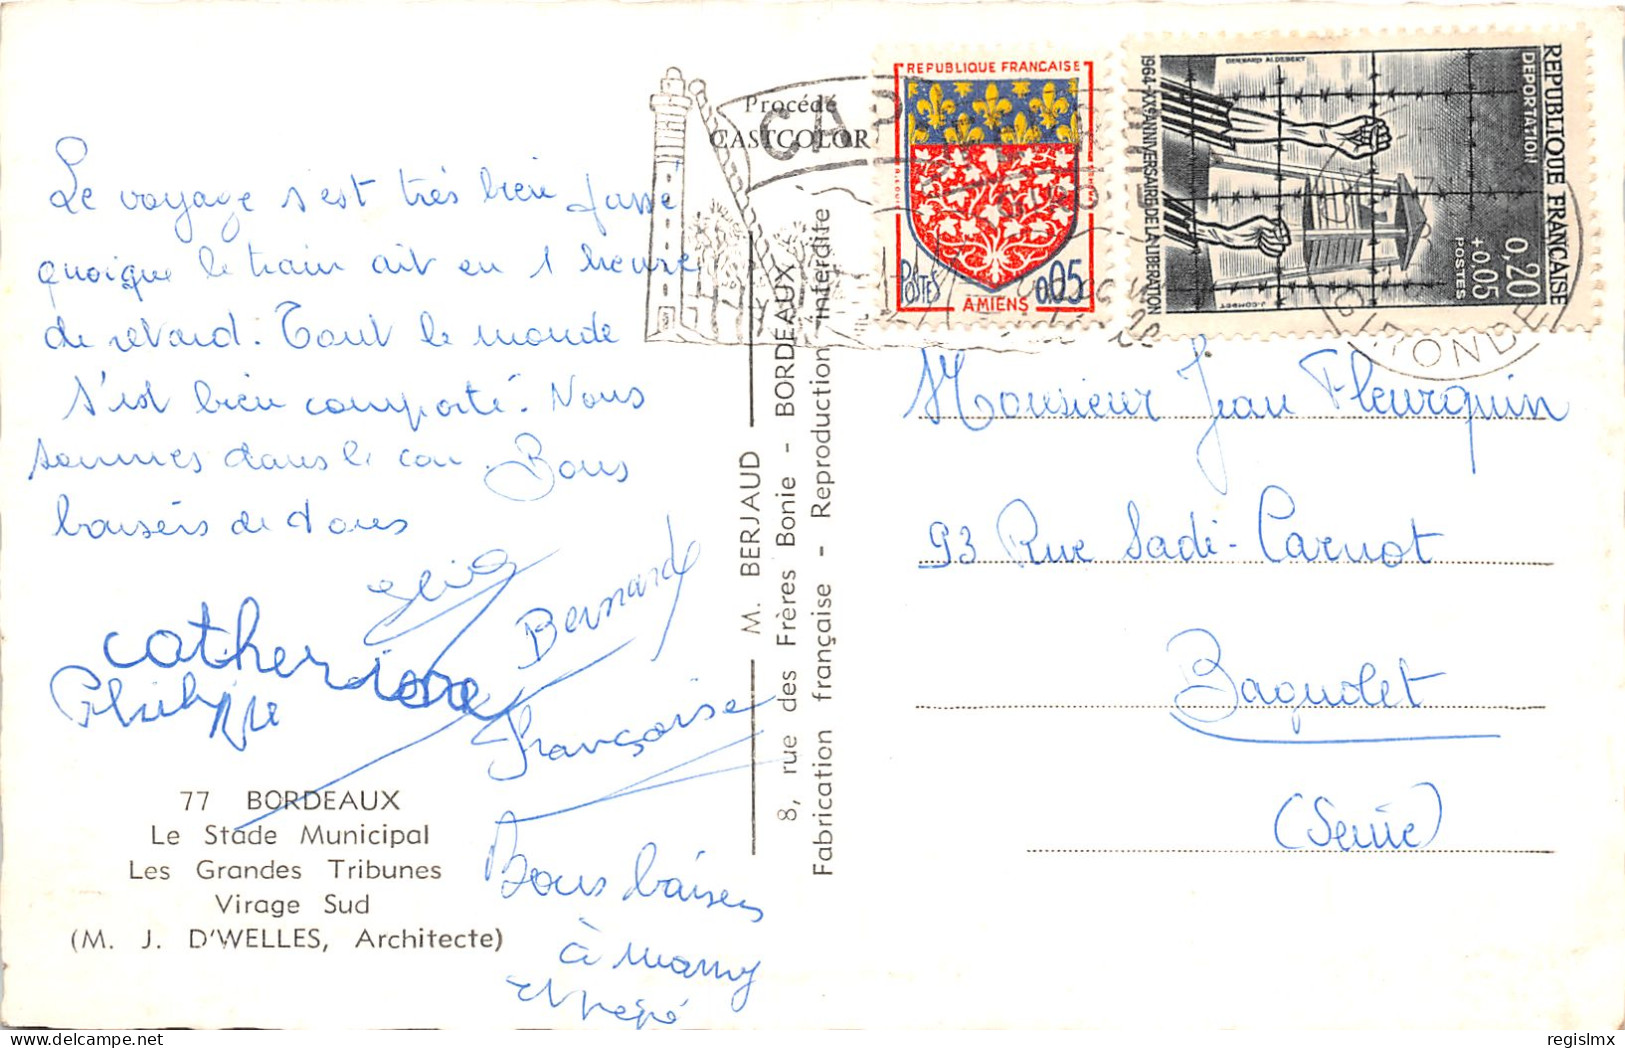 Le voyage s'est très bien passé
quoique le train ait eu 1 heure
de retard. Tout le monde
s'est bien comporté. Nous
sommes dans le car. Bons
baisers de tous
Catherine
Philippe
Bernard
Françoise
Bons baisers
à mamy
et pépé
77 BORDEAUX
Le Stade Municipal
Les Grandes Tribunes
Virage Sud
(M. J. D'WELLES, Architecte)
M. BERJAUD
8, rue des Frères Bonie - BORDEAUX
Fabrication française - Reproduction interdite
Procédé
CASTCOLOR
CAP
REPUBLIQUE FRANÇAISE
POSTES 0,05
AMIENS
REPUBLIQUE FRANÇAISE
DEPORTATION
0,20
+0,05
POSTES
BERNARD ALDEBERT
J. COMBET
1964-XXE ANNIVERSAIRE DE LA LIBERATION
GIRONDE
Monsieur Jean Fleurquin
93 Rue Sadi-Carnot
Bagnolet
(Seine)
regislmx